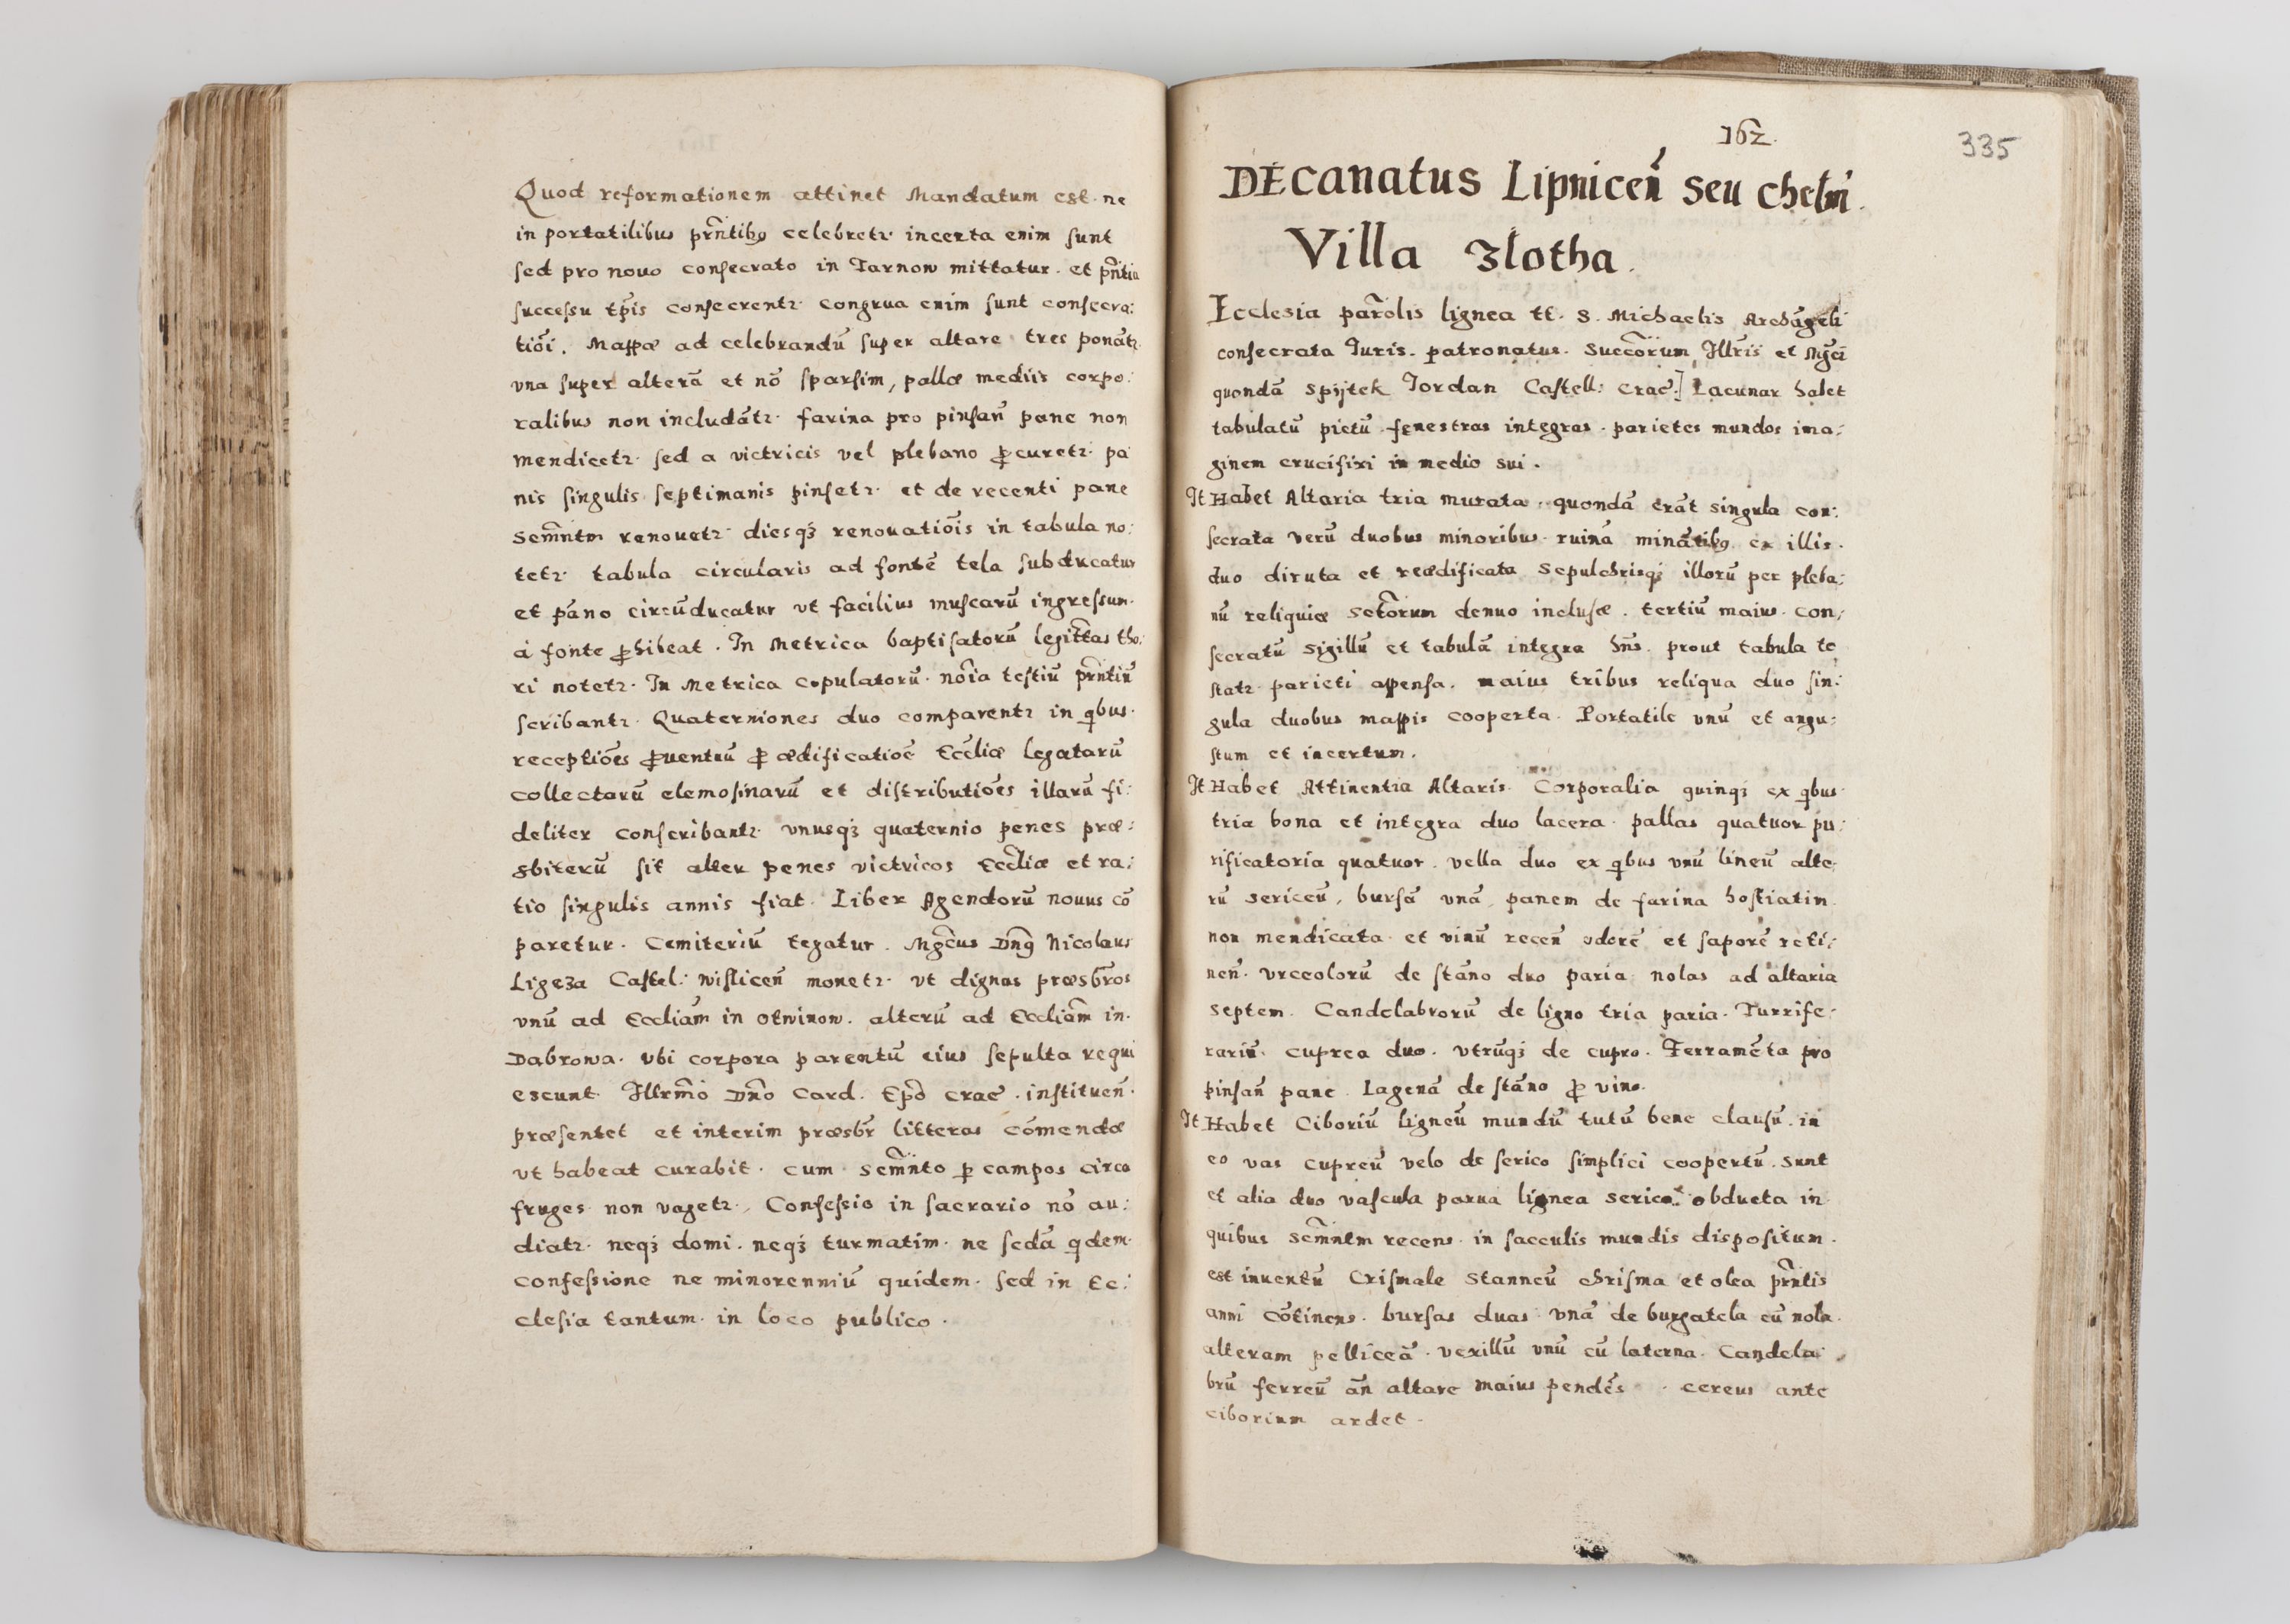 Quod reformationem attinet Mandatum est. ne
in portatilibus prñtibꝯ celebretꝛ. incerta enim ſunt
ſed pro nouo conſecrato in Tarnow mittatur. et prñtia
ſucceſsu tp̃is conſecrentꝛ. congrua enim ſunt conſecra:
tiõi. Mappæ ad celebrandũ ſuper altare tres ponãtꝛ.
vna ſuper alterã et nõ ſparſim, pallæ mediis corpo:
ralibus non includãtꝛ. farina pro pinſañ pane non
mendicetꝛ. ſed a victricis vel plebano ꝓcuretꝛ. pa
nis ſingulis ſeptimanis pinſetꝛ. et de recenti pane
Scm̃ntm renouetꝛ. diesqꝫ renouatiõis in tabula no:
tetꝛ. tabula circularis ad fontẽ tela ſubducatur
et pãno circũducatur vt facilius muſcarũ ingreſsum.
à fonte ꝓhibeat. In Metrica baptiſatorũ legitt̃as tho:
ri notetꝛ. In Metrica copulatorũ. nõia teſtiũ prñtiũ
ſcribantꝛ. Quaterniones duo comparentꝛ in qbus.
receptiões ꝓuentuũ ꝓ ædificatioẽ Eccl̃iæ legatarũ
collectarũ elemoſinarũ et diſtributiões illarũ fi:
deliter conſcribantꝛ. vnusqꝫ quaternio penes præ:
sbiterũ ſit alter penes victricos Eccl̃iæ et ra:
tio ſingulis annis fiat. Liber Agendorũ nouus cõ
paretur. Cemiteriũ tegatur. Mgc̃us Dnꝯ Nicolaus
Ligeza Caſtel: wiſliceñ monetꝛ. vt dignos præsbr̃os
vnũ ad Eccliam̃ in otwinow. alterũ ad Eccliam̃ in.
Dabrowa. vbi corpora parentũ eius ſepulta requi
escunt. Illrm̃o Dño Card. Ep̃o crac̃. inſtitueñ.
præſentet et interim præsbr̃ litteras cõmendæ
vt habeat curabit. cum Scm̃nto ꝑ campos circa
fruges non vagetꝛ. Confeſsio in ſacrario nõ au:
diatꝛ. neqꝫ domi. neqꝫ turmatim. ne ſedã qdem.
confeſsione ne minorenniũ quidem. ſed in Ec:
cleſia tantum. in loco publico.
162.
335
DEcanatus Lipniceñ seu Chelm̃.
Villa Zlotha.
Ecclesia par̃olis lignea tt. S. Michaelis Archãgeli
conſecrata Iuris. patronatus. Succõrum Illr̃is et Mgc̃i
quondã Spytek Iordan Caſtell: Crac̃.] Lacunar habet
tabulatũ pictũ. feneſtras integras. parietes mundos ima:
ginem crucifixi in medio sui.
It Habet Altaria tria murata. quondã erãt singula con:
ſecrata verũ duobus minoribus. ruinã minãtibꝯ ex illis.
duo diruta et reædificata Sepulchrisqꝫ illorũ per pleba:
nũ reliquiæ Sctõrum denuo incluſæ. tertiũ maius. con:
ſecratũ sigillũ et tabulã integra hñs. prout tabula te
ſtatꝛ parieti appenſa. maius tribus reliqua duo ſin:
gula duobus mappis cooperta. Portatile vnũ et angu:
ſtum et incertum.
It Habet Attinentia Altaris. Corporalia quinqꝫ ex qbus
tria bona et integra duo lacera. pallas quatuor pu:
rificatoria quatuor. vella duo ex qbus vnũ lineũ alte:
rũ sericeũ, burſã vnã, panem de farina hoſtiatim
non mendicata et vinũ receñ odorẽ et ſaporẽ reti:
neñ. vrceolorũ de ſtãno duo paria. nolas ad altaria
septem. Candelabrorũ de ligno tria paria. Turrife:
rariũ. cuprea duo. vtrũqꝫ de cupro. Ferramẽta pro
pinſañ pane. Lagenã de ſtãno ꝓ vino.
It Habet Ciboriũ ligneũ mundũ tutũ bene clauſũ. in
eo vas cupreũ velo de ſerico ſimplici coopertũ. sunt
et alia duo vaſcula parua lignea serico. obducta in
quibus Scm̃ntm recens. in ſacculis mundis dispoſitum.
est inuentũ Criſmale stanneũ chriſma et olea prñtis
anni cõtinens. burſas duas. vnã de burgatela cũ nola.
alteram pelliceã. vexillũ vnũ cũ laterna. Candela:
brũ ferreũ añ altare maius pendẽs. cereus ante
ciborium ardet.